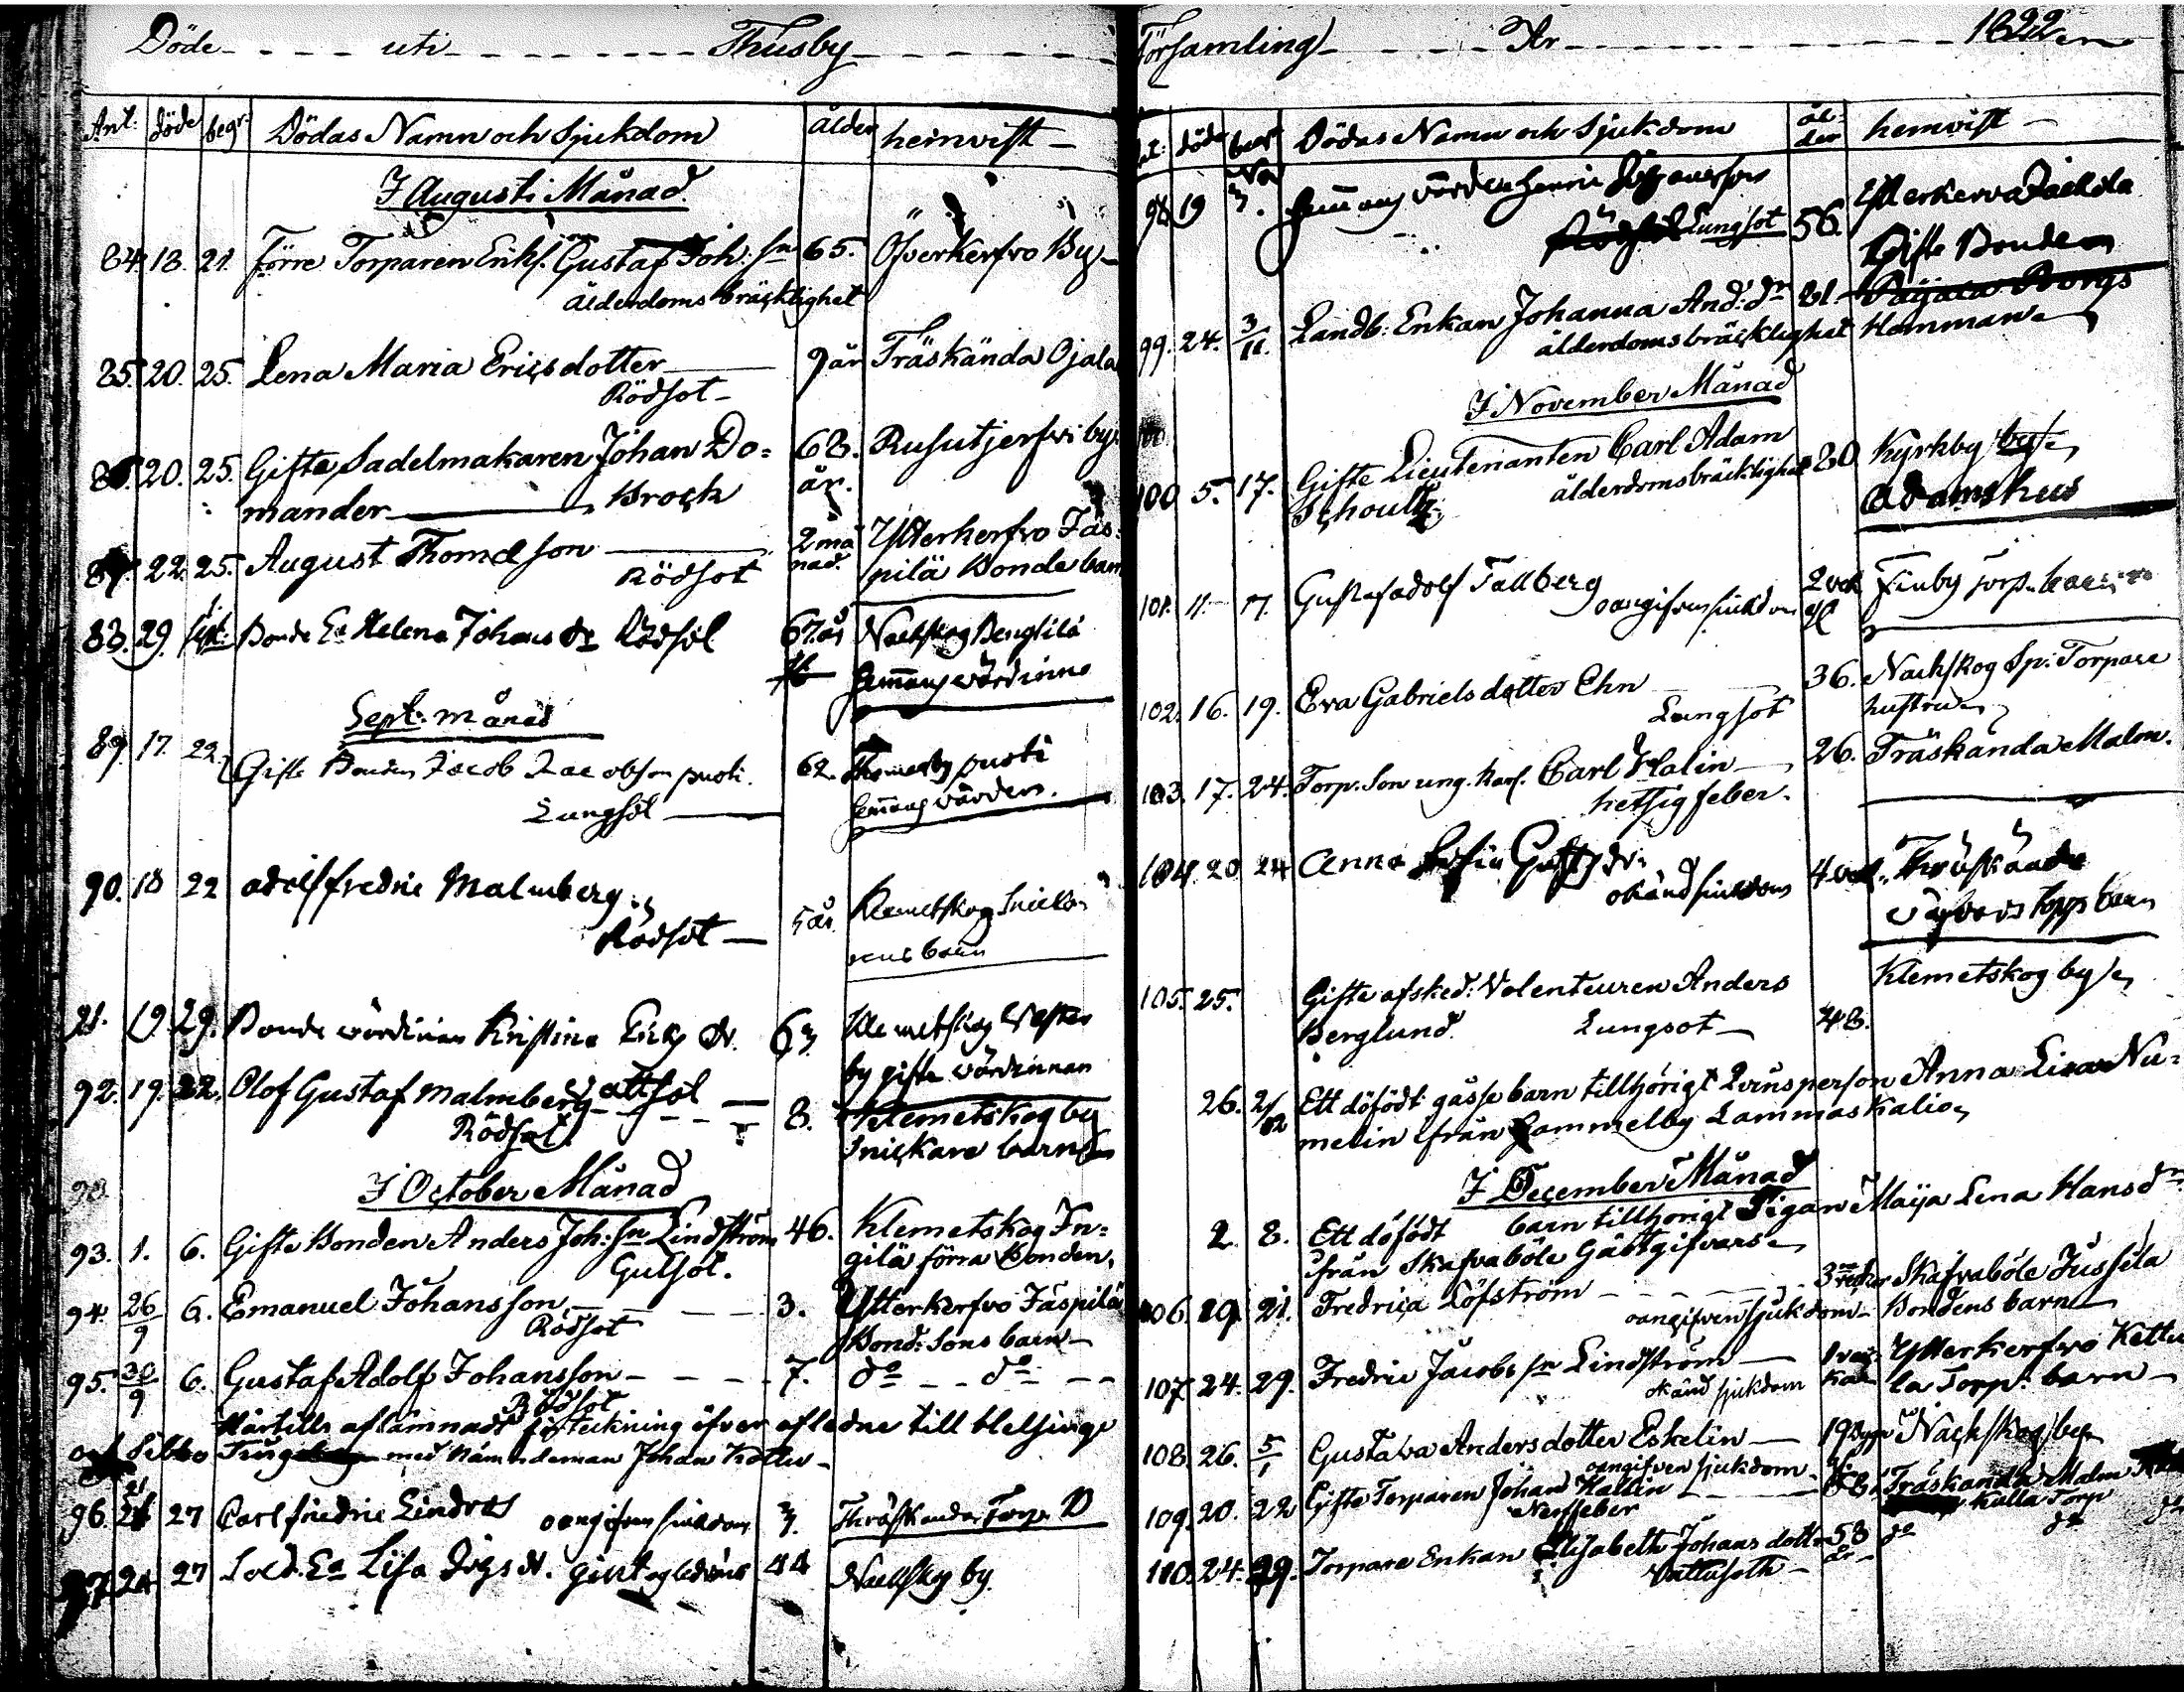 Döde uti Thusby
Ant. döde begr. Dödas Namn och Sjukdom ålder hemvist
I Augusti Månad
84. 18. 21. Förre Torparen Gustaf Joh:sn 65. Öfverkerfvo By
ålderdoms bräcklighet
85. 20. 25. Lena Maria Ericsdotter 9 år Träskända Ojala
Rödsot
86. 20. 25. Gifte Sadelmakaren Johan Do= 68. Rusutjerfvi by
mander Brock år.
87. 22. 25. August Thomasson 2 må Ytterkerfvo Jäs=
Rödsot nad. pilä Bonde barn
88. 29. Sept: Bonde Ea Helena Johans dr Rödsot 67 år
Hemmans värdinna
Sept. månad
89. 17. 22. Gifte Bonden Jacob Jacobson pusti. 62. pusti
Lungsot Hemmans värden.
90. 18 22 Adolf Fredric Malmberg 5 år. Klemetskog
Rödsot barn
91. 19. 29. Bonde värdinnan Kristina 63. Klemetskog Vester
by gifta värdinnan
92. 19. 22. Olof Gustaf Malmberg 8. Klemetskog by
Rödsot Snickare barn
93.
I October Månad
93. 1. 6. Gifte Bonden Anders Joh:sn Lindström 46. Klemetskog In=
Gulsot. gilä förra Bonden.
94. 26/9 6. Emanuel Johansson 3. Ytterkerfvo Jäspilä
Rödsot Bond: Sons barn
95. 30/9 6. Gustaf Adolf Johansson 7. do do
Rödsot
Härtills aflämnadt förteckning öfver aflidne till Helsinge
och Sibbo med Nämndeman Johan
96. 21 27 Carl Fredric Lindros oangifven sjukdom 3. Thräskända Torp.
97 24 27 Sold. Ea Lisa 44 Nackskog by.
Församling År 1822
döde begr Dödas Namn och Sjukdom ål-
der hemvist
98 19 3. Hemmans värden Henric Johansson Ytterkerva
Lungsot 56. Gifte Bonden
99. 24. 3/11. Landb: Enkan Johanna And:dr 81. Borgs
ålderdomsbräcklighet Hemman
I November Månad
100
100 5. 17. Gifte Lieutenanten Carl Adam 80 Kyrkby by
Schoultz ålderdomsbräcklighet Adamshus
101. 11. 17. Gustaf Adolf Tallberg 2 vek Finby Torp. barn
oangifven sjukdom
102. 16. 19. Eva Gabrielsdotter Ehn 36. Nackskog Sp: Torpare
Lungsot hustru
103. 17. 24. Torp. Son ung. Karl. Carl Malin 26. Träskända Malm.
hetsig feber.
104. 20 24 Anna Sofia Gustfs dr 4 vek. Thräskända
okänd sjukdom barn
105. 25. Gifte afsked: Volenteuren Anders Klemetskog by
Berglund. Lungsot 48.
26. 2/12 Ett döfödt gåsse barn tillhörigt Qvinsperson Anna Lisa Nu=
melin från Gammelby Lammaskalio
I December Månad
2. 8. Ett döfödt barn tillhörigt Pigan Maija Lena Hansdr
från Skafvaböle Gästgifvars
106. 19. 21. Fredrica Löfström 3 veckor Skafvaböle Jussila
oangifven sjukdom Bondens barn
107. 24. 29. Fredric Jacobs sn Lindström 1 vec- Ytterkerfvo Kettu
okänd sjukdom ka la Torp. barn
108. 26. 5/1 Gustava Andersdotter Eskelin 19 Nackskog by
oangifven sjukdom
109. 20. 22 Gifte Torparen Johan Hallin 58 Träskända Malm
Nerffeber Kulla Torp
110. 24. 29. Torpare Enkan Elisabeth Johansdotter 58 do do
Vattusoth år